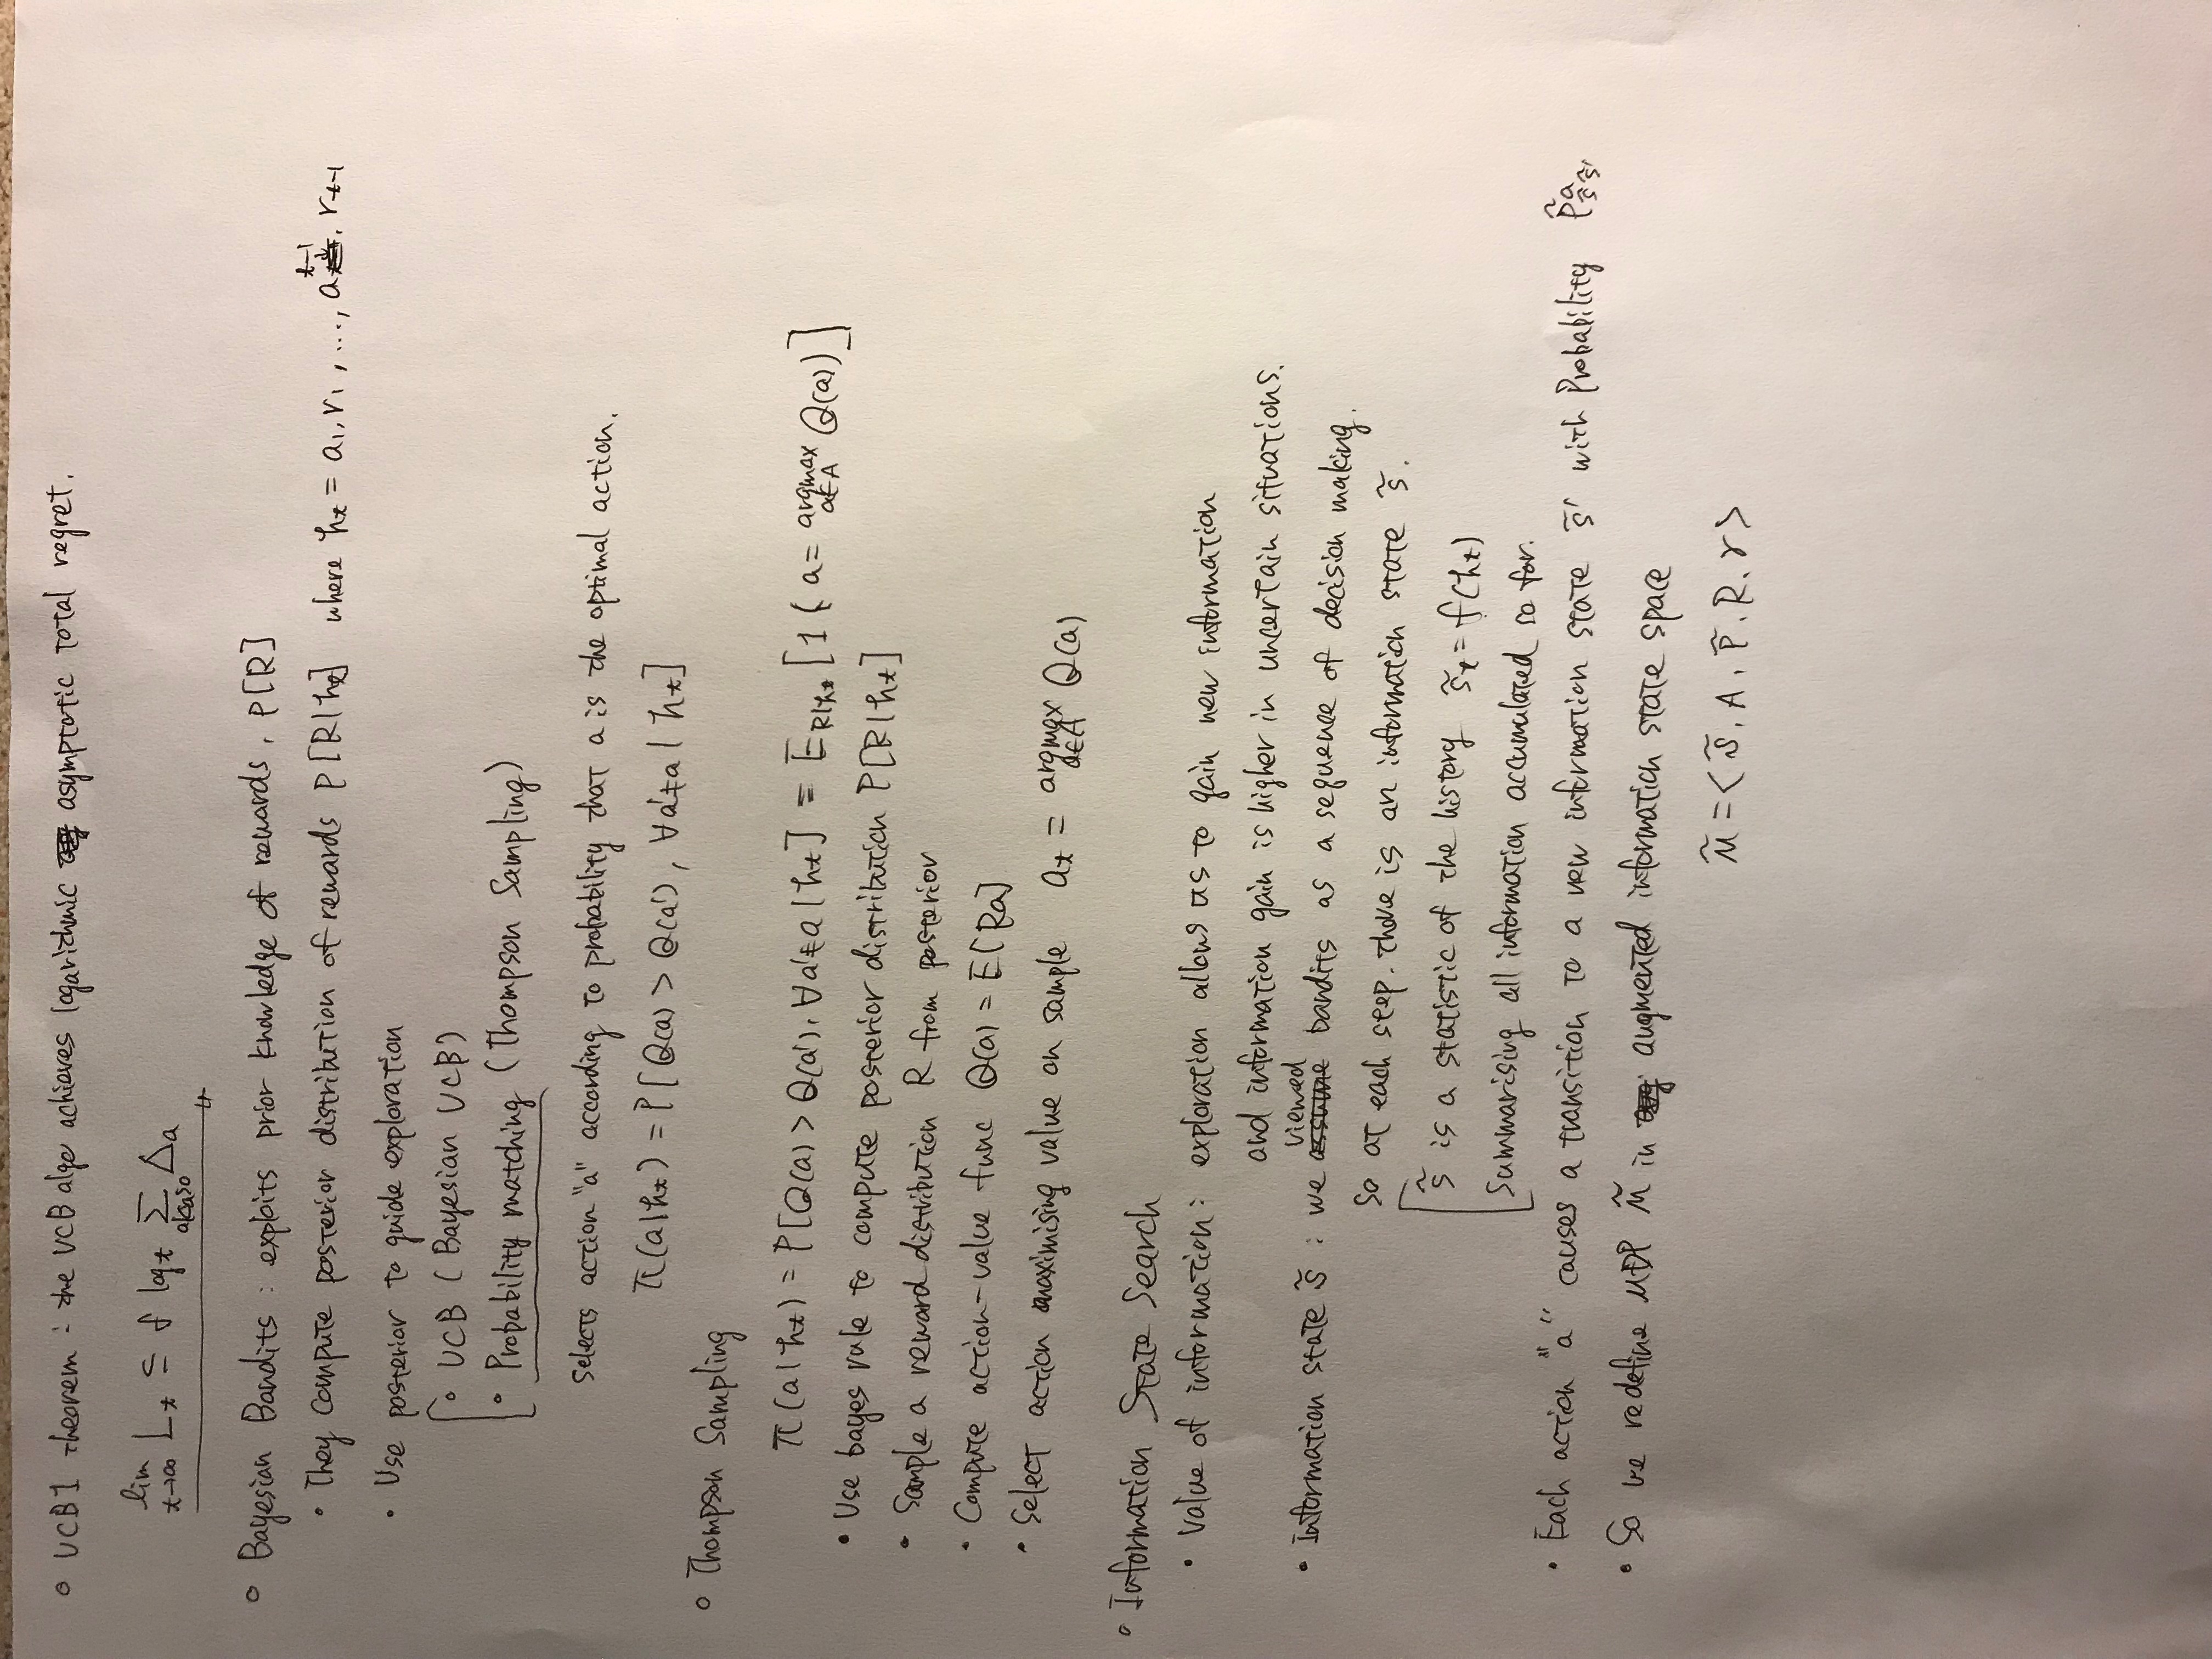 ◦ UCB1 theorem : the UCB algo achieves logarithmic asymptotic total regret.
lim t→∞ L_t ≤ 8 log t Σ a|Δa>0 Δa
◦ Bayesian Bandits : exploits prior knowledge of rewards, P[R]
• They compute posterior distribution of rewards P[R|h_t] where h_t = a_1, r_1, ..., a_t-1, r_t-1
• Use posterior to guide exploration
◦ UCB (Bayesian UCB)
• Probability matching (Thompson Sampling)
Selects action "a" according to probability that a is the optimal action.
π(a|h_t) = P[Q(a) > Q(a'), ∀a'≠a | h_t]
◦ Thompson Sampling
π(a|h_t) = P[Q(a) > Q(a'), ∀a'≠a | h_t] = E_R|h_t [1(a = argmax a∈A Q(a))]
• Use bayes rule to compute posterior distribution P[R|h_t]
• Sample a reward distribution R from posterior
• Compute action-value func Q(a) = E[Ra]
• Select action maximising value on sample a_t = argmax a∈A Q(a)
◦ Information State Search
• Value of information : exploration allows us to gain new information
and information gain is higher in uncertain situations.
• Information state s̃ : we viewed bandits as a sequence of decision making.
So at each step. there is an information state s̃.
s̃ is a statistic of the history s̃_t = f(h_t)
Summarising all information accumulated so far.
• Each action "a" causes a transition to a new information state s̃' with Probability P̃^a_s̃s̃'
• So we redefine MDP M̃ in augmented information state space
M̃ = <S̃, A, P̃, R, γ>